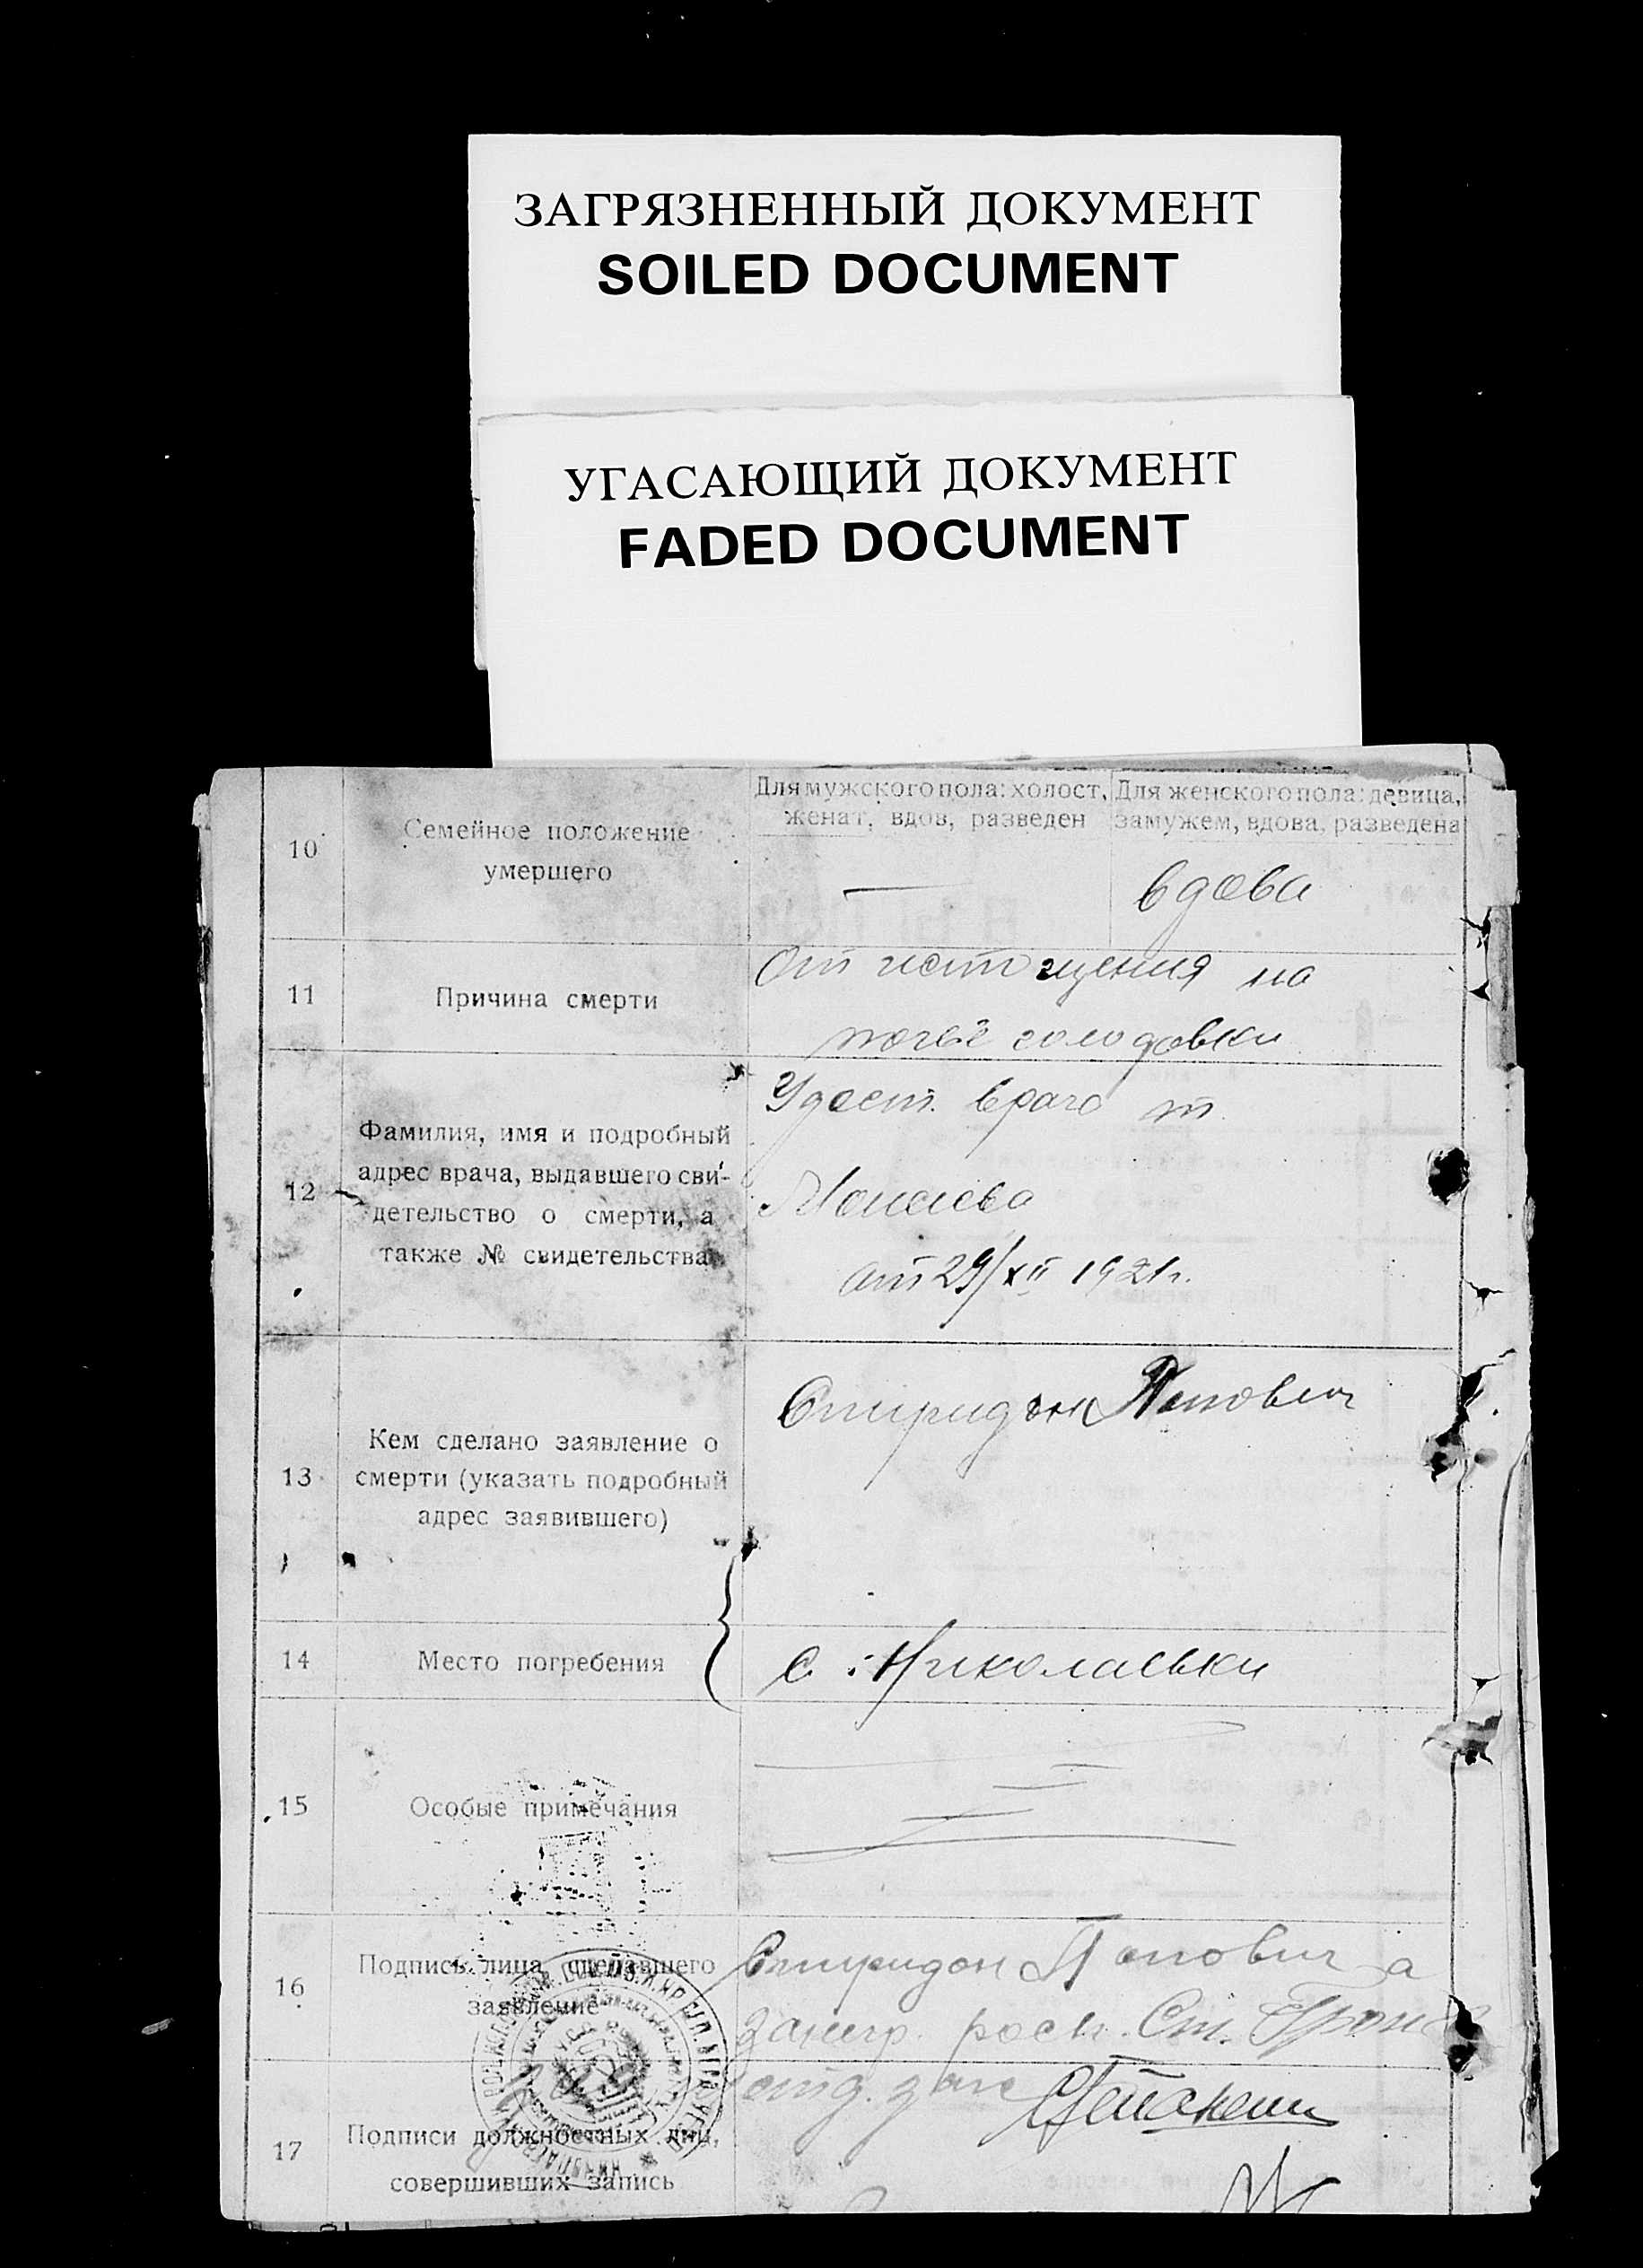 ЗАГРЯЗНЕННЫЙ ДОКУМЕНТ
SOILED DOCUMENT
УГАСАЮЩИЙ ДОКУМЕНТ
FADED DOCUMENT
10
Семейное положение
умершего
Для мужского пола: холост,
женат, вдов, разведен
—
Для женского пола: девица,
замужем, вдова, разведена
вдова
11
Причина смерти
От истощения на
почве голодовки
12
Фамилия, имя и подробный
адрес врача, выдавшего сви-
детельство о смерти, а
также № свидетельства
Удост. врача т.
от 29/XII 1921 г.
13
Кем сделано заявление о
смерти (указать подробный
адрес заявившего)
Спиридон Попович
14
Место погребения
с. Николаевки
15
Особые примечания
16
Подпись лица, сделавшего
заявление
Спиридон Попович а
за негр. расп. Ст.
17
Подписи должностных лиц,
совершивших запись
отд. загс